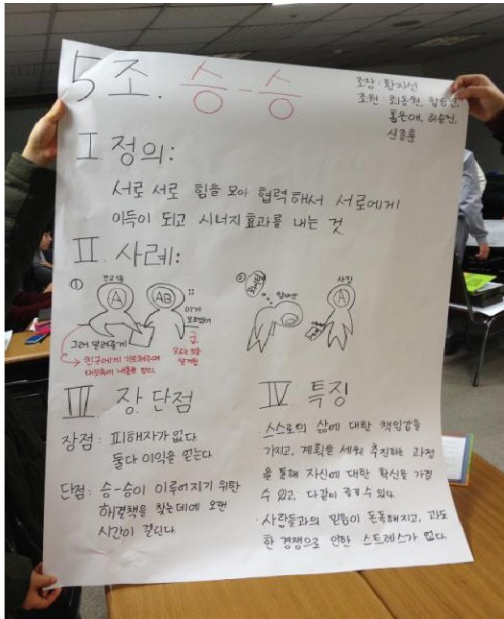 5조. 승-승
조장: 황지선
조원: 최동원,
홍은애, 허승진,
신종훈
I 정의:
서로 서로 힘을 모아 협력해서 서로에게
이득이 되고 시너지 효과를 내는 것
II. 사례:
①
A
AB
그래 알려줄게
이게
친구에게 가르쳐주며
②
A
III 장.단점
장점: 피해자가 없다.
둘다 이익을 얻는다.
단점: 승-승이 이루어지기 위한
해결책을 찾는데에 오랜
시간이 걸린다.
IV. 특징
· 스스로의 삶에 대한 책임감을
가지고, 계획을 세워 추진하는 과정
을 통해 자신에 대한 확신을 가질
수 있고, 다같이 좋을 수 있다.
· 사람들과의 믿음이 돈독해지고, 과도
한 경쟁으로 인한 스트레스가 없다.